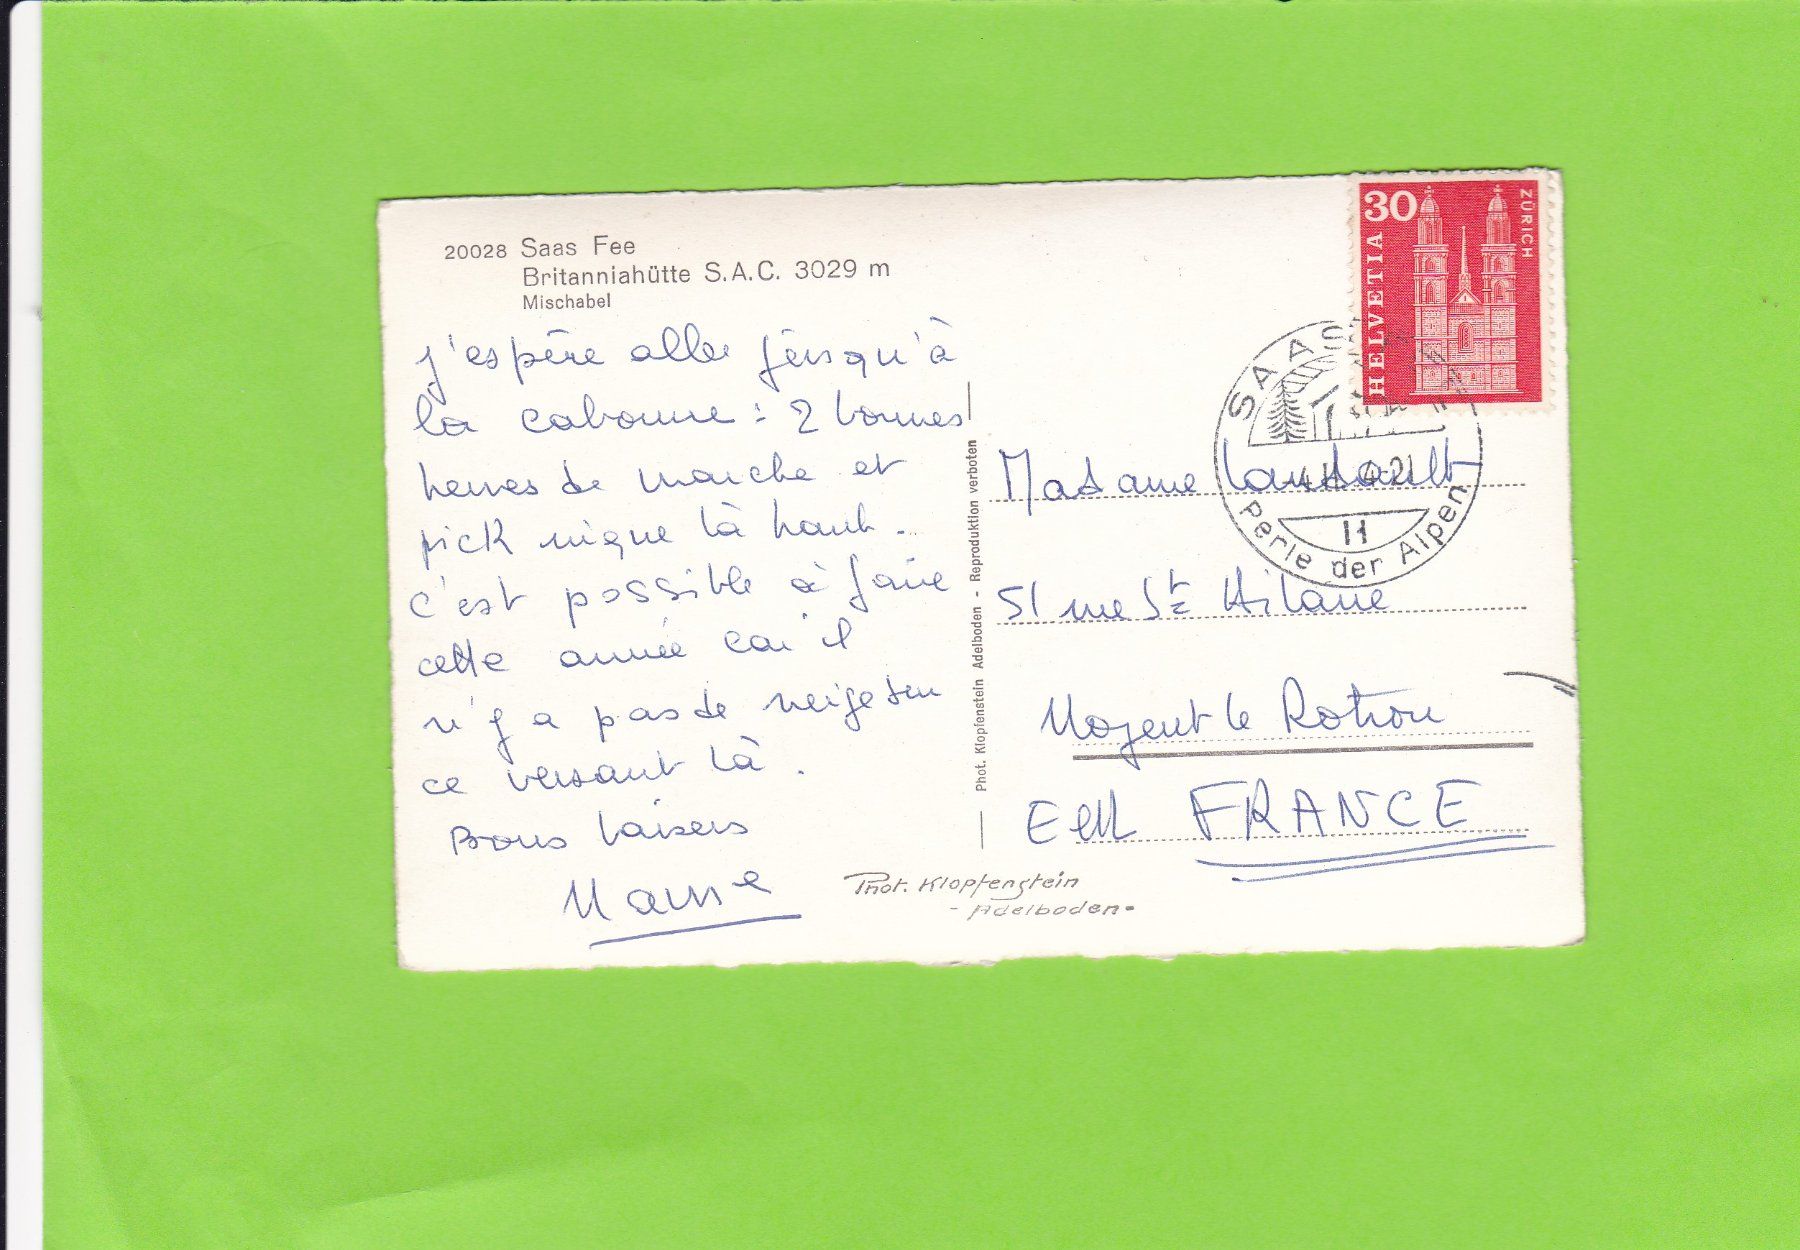 20028 Saas Fee
Britanniahütte S.A.C. 3029 m
Mischabel
j'espère aller jusqu'à
la cabane : 2 bonnes
heures de marche et
pick nique là haut.
c'est possible à faire
cette année car il
n'y a pas de neige sur
ce versant là.
Bons baisers
Phot. Klopfenstein Adelboden - Reproduktion verboten
Phot. Klopfenstein
- Adelboden -
30
HELVETIA
ZÜRICH
SAAS
11
Perle der Alpen
Madame
51 rue St Hilaire
Nogent le Rotrou
FRANCE